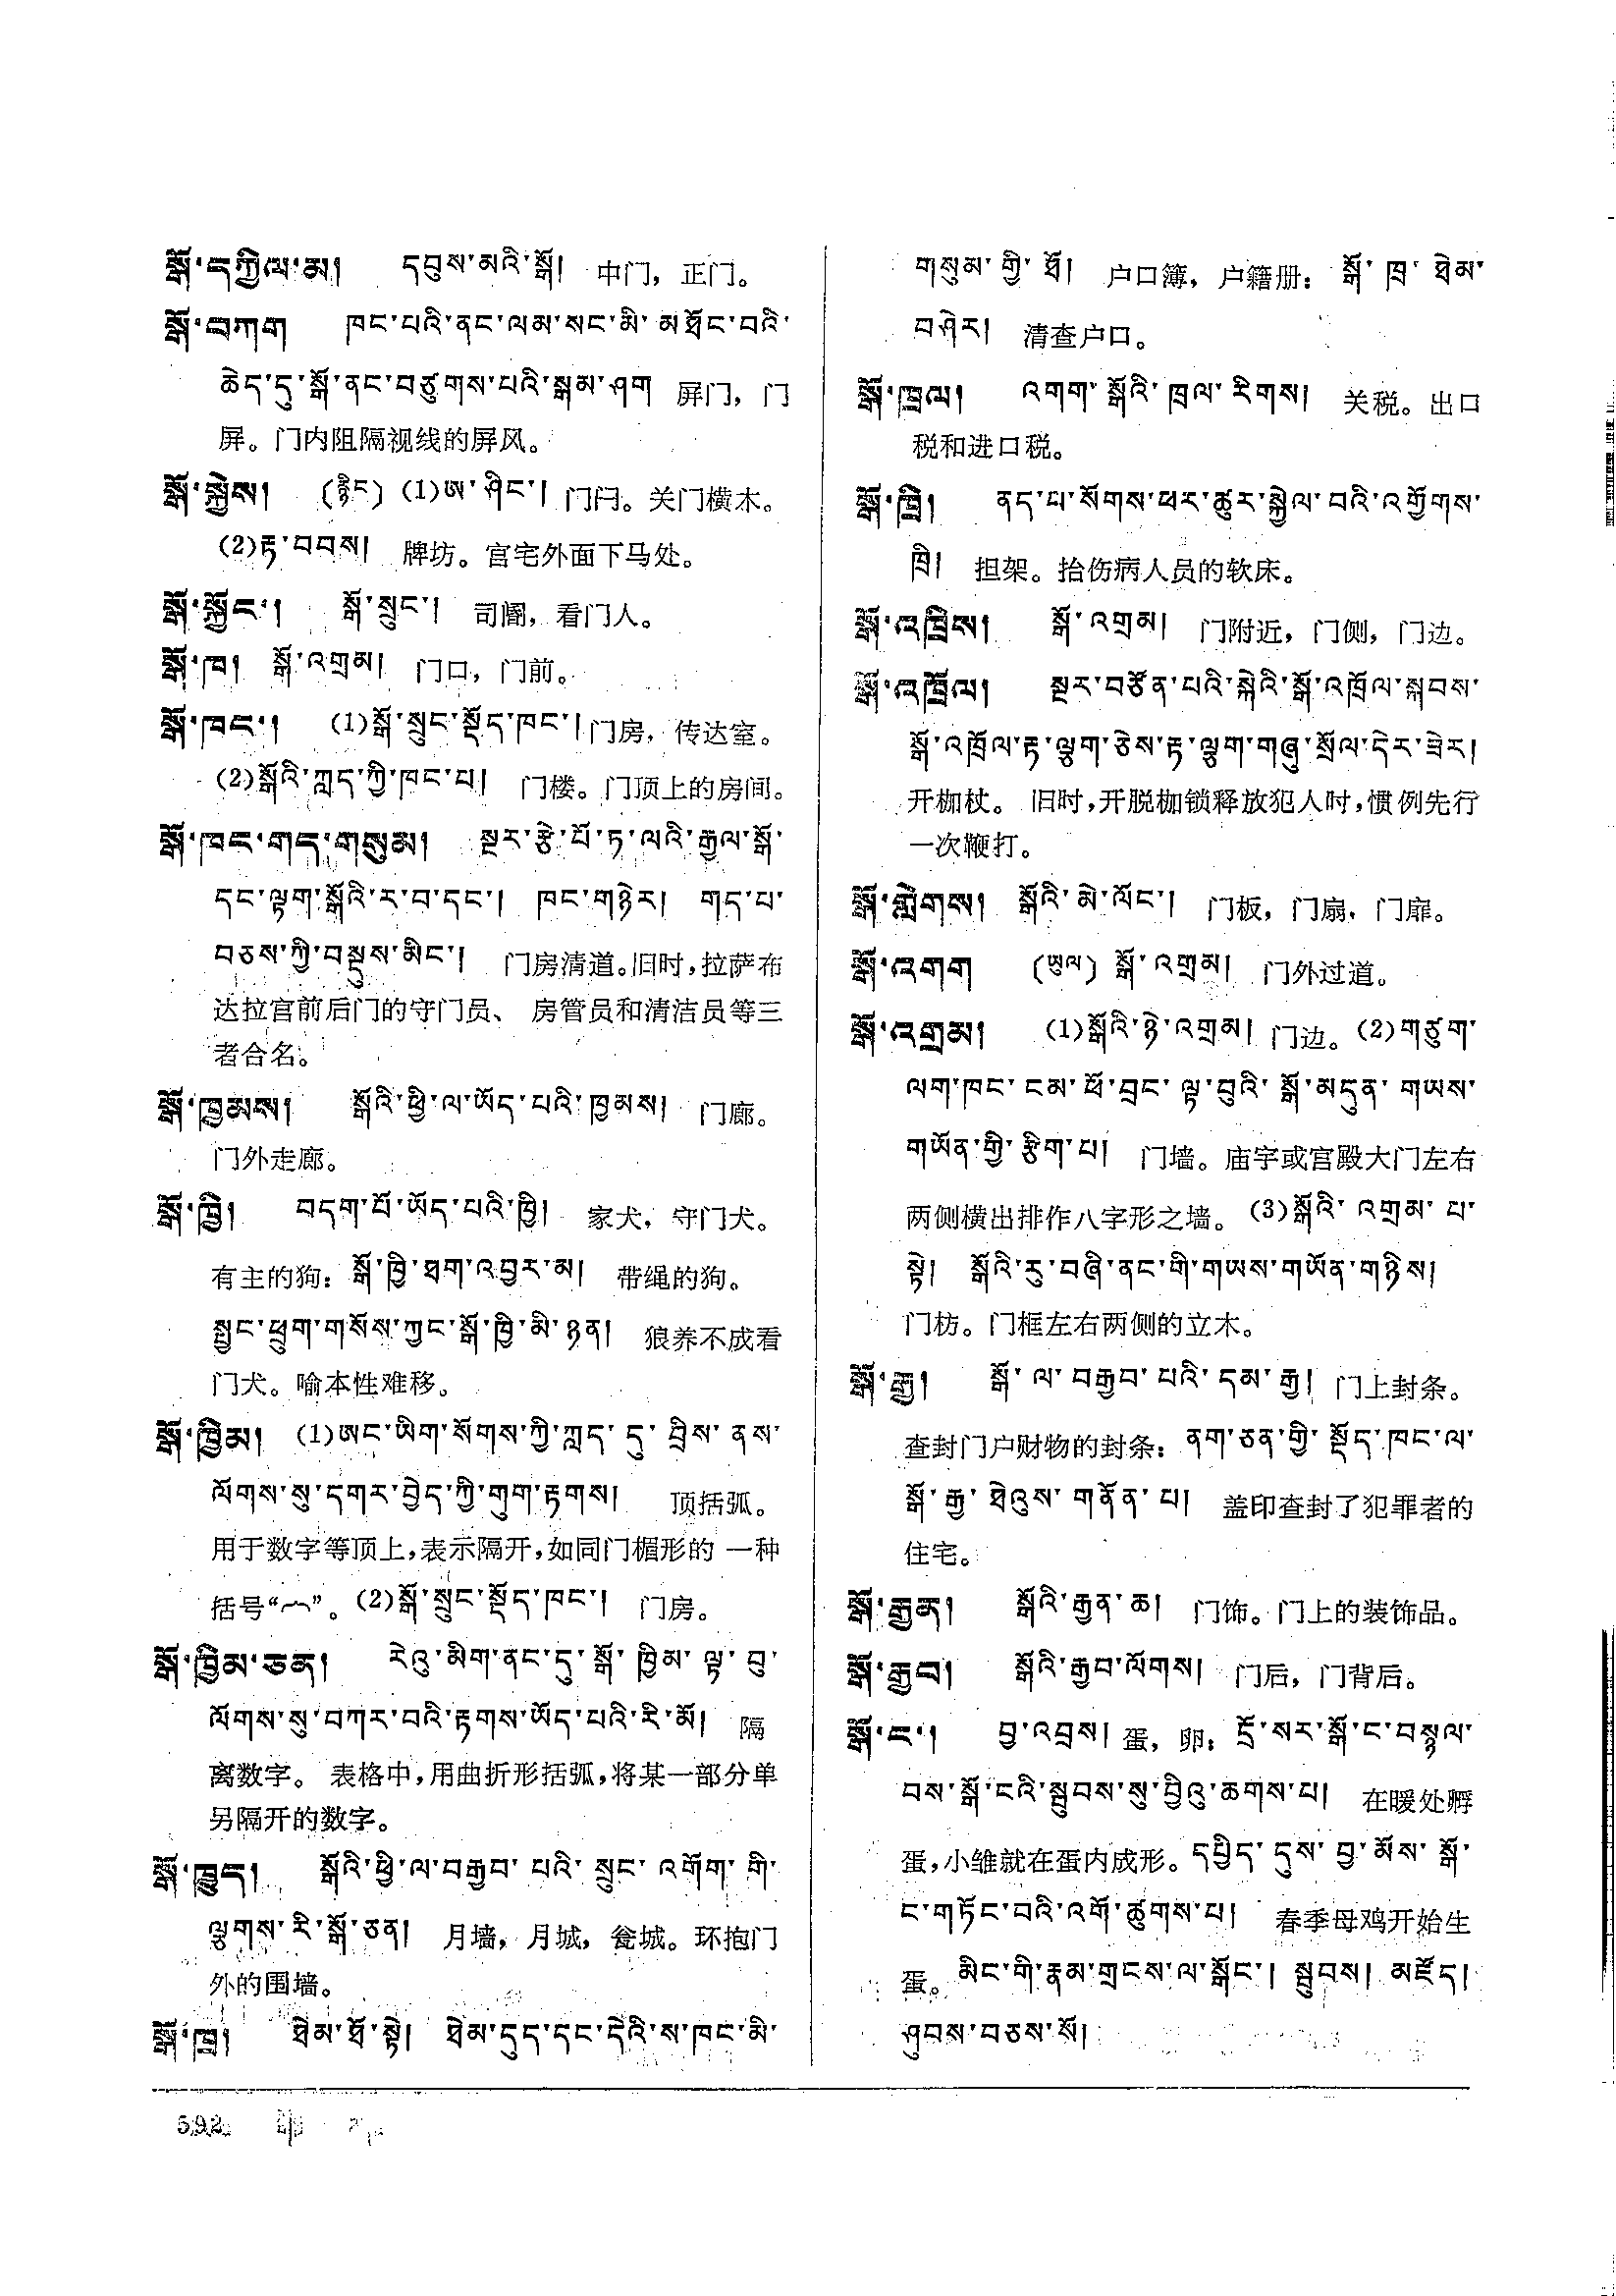 སྒོ་དཀྱིལ་མ། དབུས་མའི་སྒོ། 中门，正门。
སྒོ་བཀག ཁང་པའི་ནང་ལམ་སང་མི་མཐོང་བའི་
ཆེད་དུ་སྒོ་ནང་བཙུགས་པའི་སྒམ་ཤག 屏门，门
屏。门内阻隔视线的屏风。
སྒོ་སྐྱེས། (རྙིང) (1)ཨ་ཤིང་། 门闩。关门横木。
(2)རྟ་བབས། 牌坊。官宅外面下马处。
སྒོ་སྐྱོང་། སྒོ་སྲུང་། 司阍，看门人。
སྒོ་ཁ། སྒོ་འགྲམ། 门口，门前。
སྒོ་ཁང་། (1)སྒོ་སྲུང་སྡོད་ཁང་། 门房，传达室。
(2)སྒོའི་ཀླད་ཀྱི་ཁང་པ། 门楼。门顶上的房间。
སྒོ་ཁང་གད་གསུམ། སྔར་རྩེ་པོ་ཏ་ལའི་རྒྱལ་སྒོ་
དང་ལྟག་སྒོའི་ར་བ་དང་། ཁང་གཉེར། གད་པ་
བཅས་ཀྱི་བསྡུས་མིང་། 门房清道。旧时，拉萨布
达拉宫前后门的守门员、房管员和清洁员等三
者合名。
སྒོ་ཁྱམས། སྒོའི་ཕྱི་ལ་ཡོད་པའི་ཁྱམས། 门廊。
门外走廊。
སྒོ་ཁྱི། བདག་པོ་ཡོད་པའི་ཁྱི། 家犬，守门犬。
有主的狗：སྒོ་ཁྱི་ཐག་འབྱར་མ། 带绳的狗。
སྤྱང་ཕྲུག་གསོས་ཀྱང་སྒོ་ཁྱི་མི་ཉན། 狼养不成看
门犬。喻本性难移。
སྒོ་ཁྱིམ། (1)ཨང་ཡིག་སོགས་ཀྱི་ཀླད་དུ་བྲིས་ནས་
ལོགས་སུ་དགར་བྱེད་ཀྱི་གུག་རྟགས། 顶括弧。
用于数字等顶上，表示隔开，如同门楣形的一种
括号“︵”。(2)སྒོ་སྲུང་སྡོད་ཁང་། 门房。
སྒོ་ཁྱིམ་ཅན། རེའུ་མིག་ནང་དུ་སྒོ་ཁྱིམ་ལྟ་བུ་
ལོགས་སུ་བཀར་བའི་རྟགས་ཡོད་པའི་རི་མོ། 隔
离数字。表格中，用曲折形括弧，将某一部分单
另隔开的数字。
སྒོ་ཁྱུད། སྒོའི་ཕྱི་ལ་བརྒྱབ་པའི་སྲུང་འགོག་གི་
ལྕགས་རི་སྒོ་ཅན། 月墙，月城，瓮城。环抱门
外的围墙。
སྒོ་ཁྲ། ཐེམ་ཐོ་སྟེ། ཐེམ་དུད་དང་དེའི་ས་ཁང་མི་
གསུམ་གྱི་ཐོ། 户口簿，户籍册：སྒོ་ཁྲ་ཐེམ་
བཤེར། 清查户口。
སྒོ་ཁྲལ། འགག་སྒོའི་ཁྲལ་རིགས། 关税。出口
税和进口税。
སྒོ་ཁྲི། ནད་པ་སོགས་ཕར་ཚུར་སྐྱེལ་བའི་འགྱོགས་
ཁྲི། 担架。抬伤病人员的软床。
སྒོ་འཁྲིས། སྒོ་འགྲམ། 门附近，门侧，门边。
སྒོ་འཁྲོལ། སྔར་བཙོན་པའི་སྐེའི་སྒོ་འཁྲོལ་སྐབས་
སྒོ་འཁྲོལ་རྟ་ལྕག་ཅེས་རྟ་ལྕག་གཞུ་སྲོལ་དེར་ཟེར།
开枷杖。旧时，开脱枷锁释放犯人时，惯例先行
一次鞭打。
སྒོ་གླེགས། སྒོའི་མེ་ལོང་། 门板，门扇，门扉。
སྒོ་འགག (ཡུལ) སྒོ་འགྲམ། 门外过道。
སྒོ་འགྲམ། (1)སྒོའི་ཉེ་འགྲམ། 门边。(2)གཙུག་
ལག་ཁང་ངམ་ཕོ་བྲང་ལྟ་བུའི་སྒོ་མདུན་གཡས་
གཡོན་གྱི་རྩིག་པ། 门墙。庙宇或宫殿大门左右
两侧横出排作八字形之墙。(3)སྒོའི་འགྲམ་པ་
སྟེ། སྒོའི་རུ་བཞི་ནང་གི་གཡས་གཡོན་གཉིས།
门枋。门框左右两侧的立木。
སྒོ་རྒྱ། སྒོ་ལ་བརྒྱབ་པའི་དམ་རྒྱ། 门上封条。
查封门户财物的封条：ནག་ཅན་གྱི་སྡོད་ཁང་ལ་
སྒོ་རྒྱ་ཐེའུས་གནོན་པ། 盖印查封了犯罪者的
住宅。
སྒོ་རྒྱན། སྒོའི་རྒྱན་ཆ། 门饰。门上的装饰品。
སྒོ་རྒྱབ། སྒོའི་རྒྱབ་ལོགས། 门后，门背后。
སྒོ་ང་། བྱ་འབྲས། 蛋，卵：དྲོ་སར་སྒོ་ང་བསྙལ་
བས་སྒོ་ངའི་སྦུབས་སུ་བྱིའུ་ཆགས་པ། 在暖处孵
蛋，小雏就在蛋内成形。དཔྱིད་དུས་བྱ་མོས་སྒོ་
ང་གཏོང་བའི་འགོ་ཚུགས་པ། 春季母鸡开始生
蛋。མིང་གི་རྣམ་གྲངས་ལ་སྒོང་། སྦུབས། མཛོད།
ཤུབས་བཅས་སོ།
592